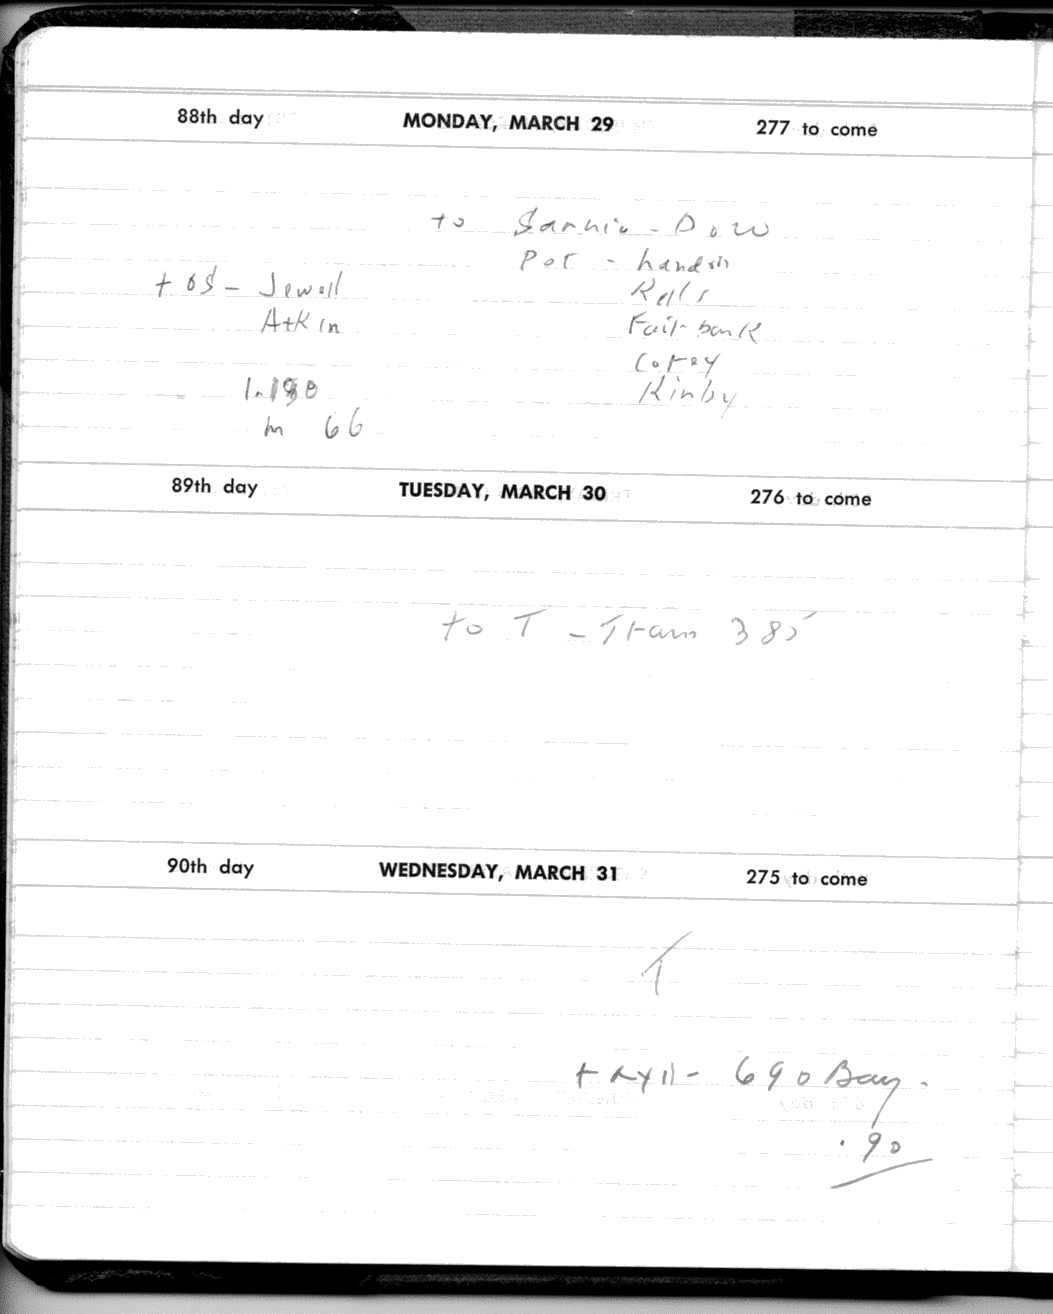 88th day MONDAY, MARCH 29 277 to come
to Sarnia - Dow
Pot - hands in
+ OS - Jewell
Rells
Atkin
Fairbank
Corey
1.180
Kinby
m 66
89th day TUESDAY, MARCH 30 276 to come
to T - Tram 385
90th day WEDNESDAY, MARCH 31 275 to come
T
taxi - 690 Bay.
.90